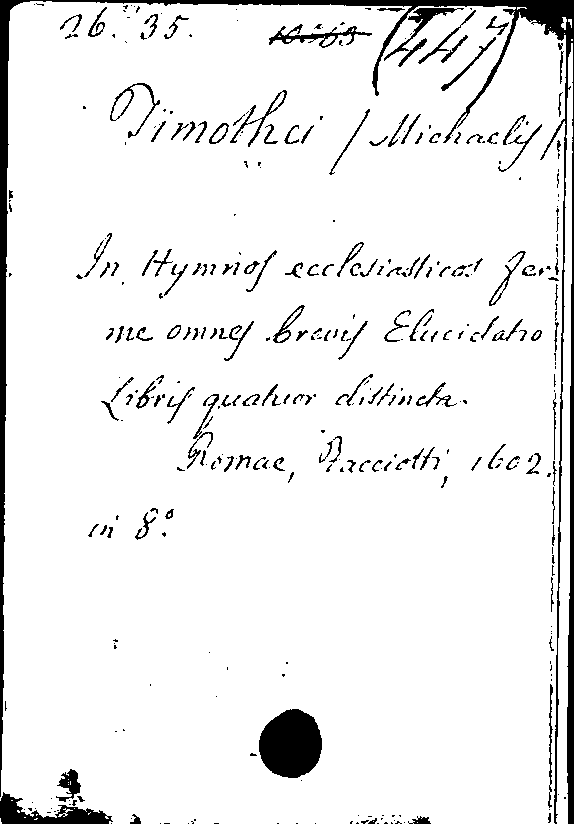 26. 35. (447)
Timothei / Michaelis /
In Hymnos ecclesiasticos fer-
me omnes brevis Elucidatio
Libris quatuor distincta.
Romae, Facciotti, 1602.
in 8.°